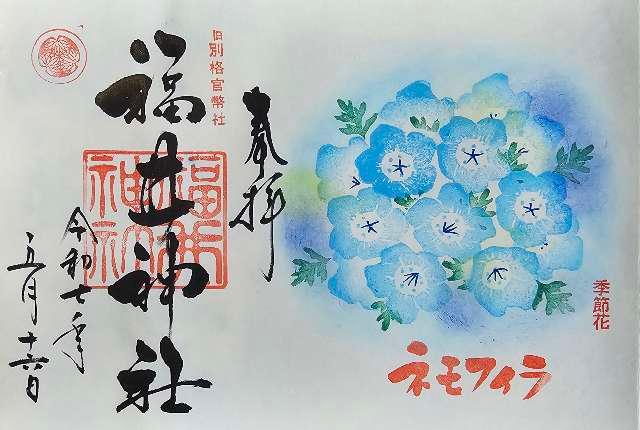 季節花
ネモフィラ
奉拝
旧別格官幣社
福井神社
令和七年
五月十六日